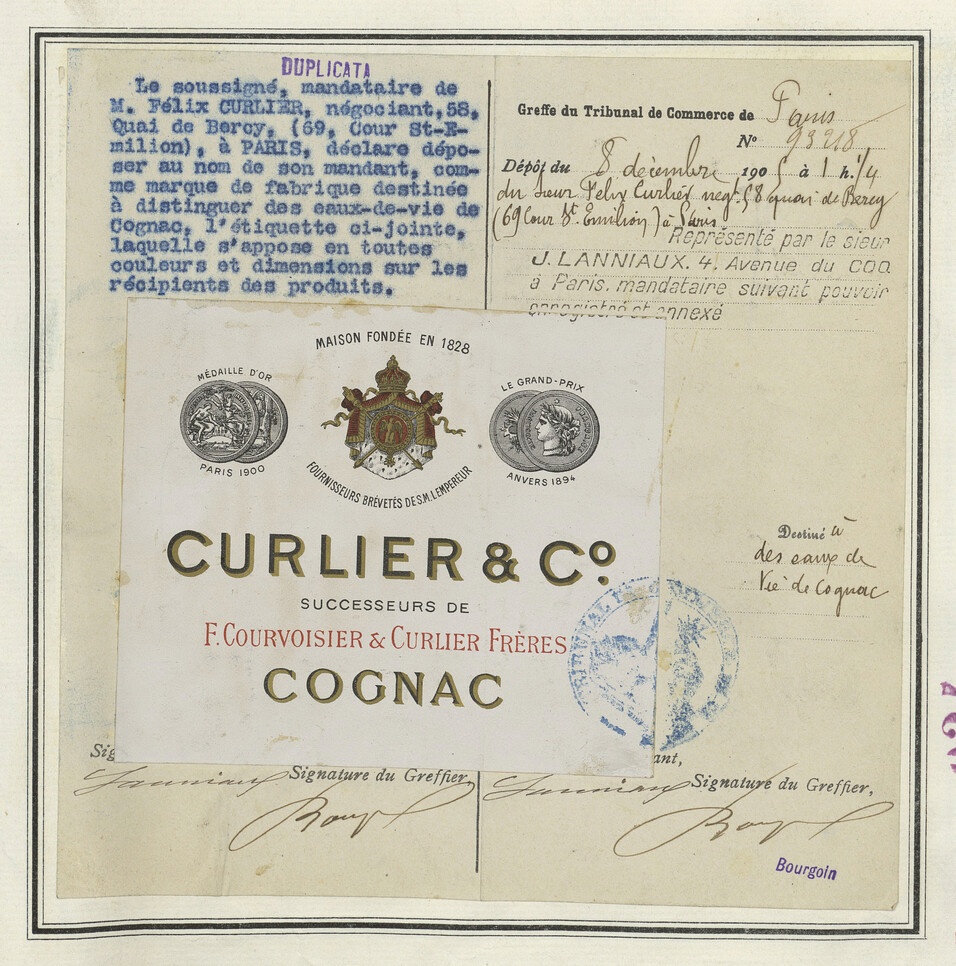 DUPLICATA
Le soussigné, mandataire de
M. Félix CURLIER, négociant, 58,
Quai de Bercy, (69, Cour St-E-
milion), à PARIS, déclare dépo-
ser au nom de son mandant, com-
me marque de fabrique destinée
à distinguer des eaux-de-vie de
Cognac, l'étiquette ci-jointe,
laquelle s'appose en toutes
couleurs et dimensions sur les
récipients des produits.
Greffe du Tribunal de Commerce de Paris
No 93218
Dépôt du 8 décembre 1905 à 1 h. 1/4
du sieur Felix Curlier negt. 58 quai de Bercy
(69 Cour St. Emilion) à Paris
Représenté par le sieur
J. LANNIAUX. 4, Avenue du COQ
à Paris, mandataire suivant pouvoir
enregistré et annexé
MAISON FONDÉE EN 1828
MÉDAILLE D'OR
PARIS 1900
FOURNISSEURS BRÉVETÉS DE S.M. L'EMPEREUR
LE GRAND-PRIX
ANVERS 1894
CURLIER & Co
SUCCESSEURS DE
F. COURVOISIER & CURLIER FRÈRES
COGNAC
Destiné à
des eaux de
Vie de Cognac
Sig
Signature du Greffier,
ant,
Signature du Greffier,
Bourgoin